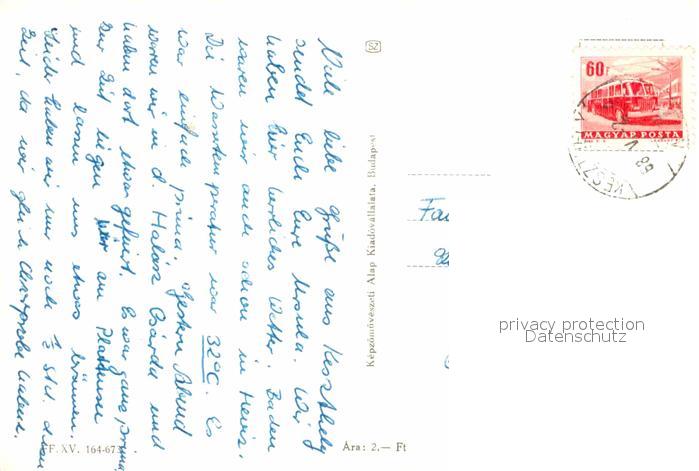 Viele liebe Grüße aus Keszthely
sendet Euch Eure Ursula. Wir
haben hier herrliches Wetter. Baden
waren wir auch schon in Heviz.
Die Wassertemperatur war 32°C. Es
war einfach prima. Gestern Abend
waren wir in d. Halász Csárda und
haben dort etwas gefeiert. Es war ganz prima.
Zur Zeit liegen wir am Plattensee
und lassen uns etwas bräunen.
Leider haben wir nur noch ½ Std.
Zeit, da wir gleich haben.
SZ
Képzőművészeti Alap Kiadóvállalata, Budapest
60f
MAGYAR POSTA
KESZTHELY
Fa
privacy protection
Datenschutz
F. XV. 164-673
Ára: 2,— Ft